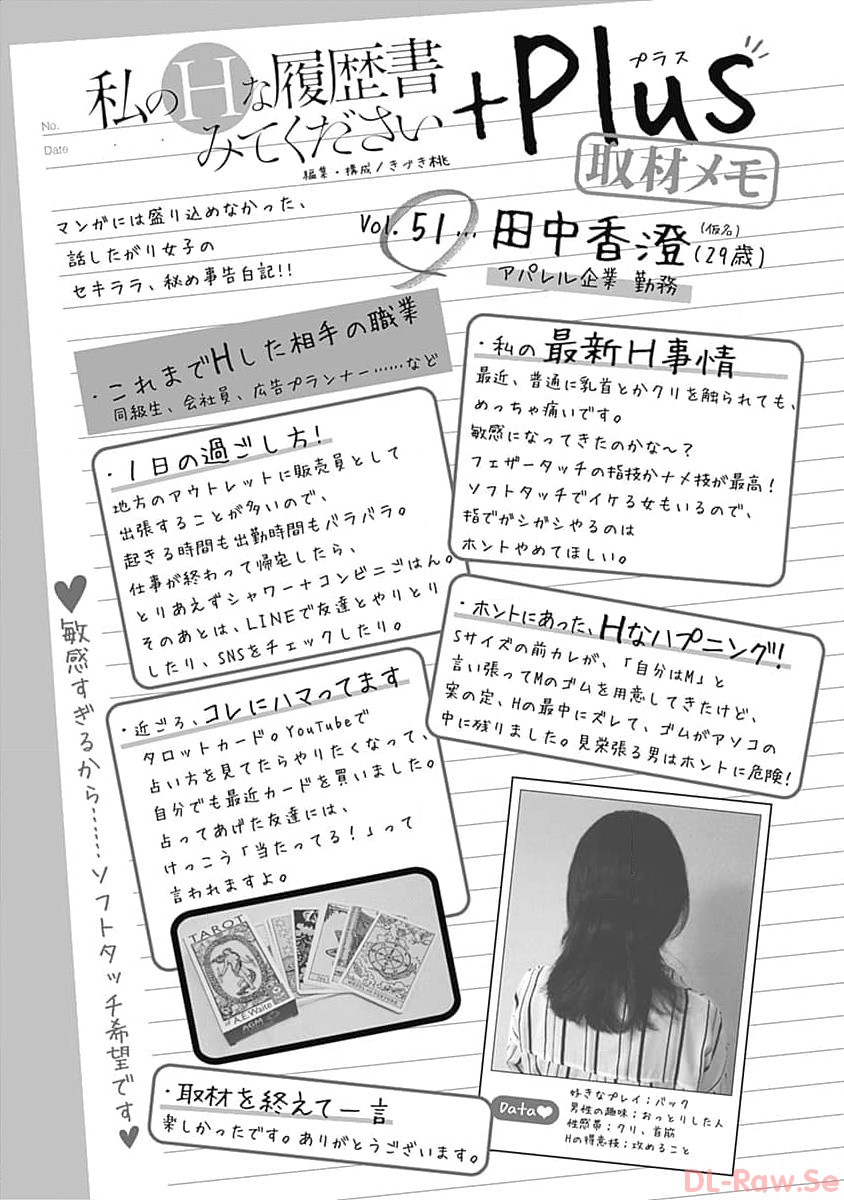 No.
Date
私のHな履歴書
みてください
+Plus
プラス
編集・構成/きづき桃
取材メモ
マンガには盛り込めなかった、
話したがり女子の
セキララ、秘め事告白記!!
Vol.51… 田中香澄(仮名)(29歳)
アパレル企業 勤務
・これまでHした相手の職業
同級生、会社員、広告プランナー……など
・1日の過ごし方!
地方のアウトレットに販売員として
出張することが多いので、
起きる時間も出勤時間もバラバラ。
仕事が終わって帰宅したら、
とりあえずシャワー+コンビニごはん。
そのあとは、LINEで友達とやりとり
したり、SNSをチェックしたり。
・私の最新H事情
最近、普通に乳首とかクリを触られても、
めっちゃ痛いです。
敏感になってきたのかな〜?
フェザータッチの指技かナメ技が最高!
ソフトタッチでイケる女もいるので、
指でガシガシやるのは
ホントやめてほしい。
・近ごろ、コレにハマってます
タロットカード。YouTubeで
占い方を見てたらやりたくなって、
自分でも最近カードを買いました。
占ってあげた友達には、
けっこう「当たってる!」って
言われますよ。
・ホントにあった、Hなハプニング!
Sサイズの前カレが、「自分はM」と
言い張ってMのゴムを用意してきたけど、
案の定、Hの最中にズレて、ゴムがアソコの
中に残りました。見栄張る男はホントに危険!
♥敏感すぎるから……ソフトタッチ希望です♥
TAROT
of A.E. Waite
AGM
・取材を終えて一言
楽しかったです。ありがとうございます。
Data♥
好きなプレイ;バック
男性の趣味;おっとりした人
性感帯;クリ、首筋
Hの得意技;攻めること
DL-Raw.Se